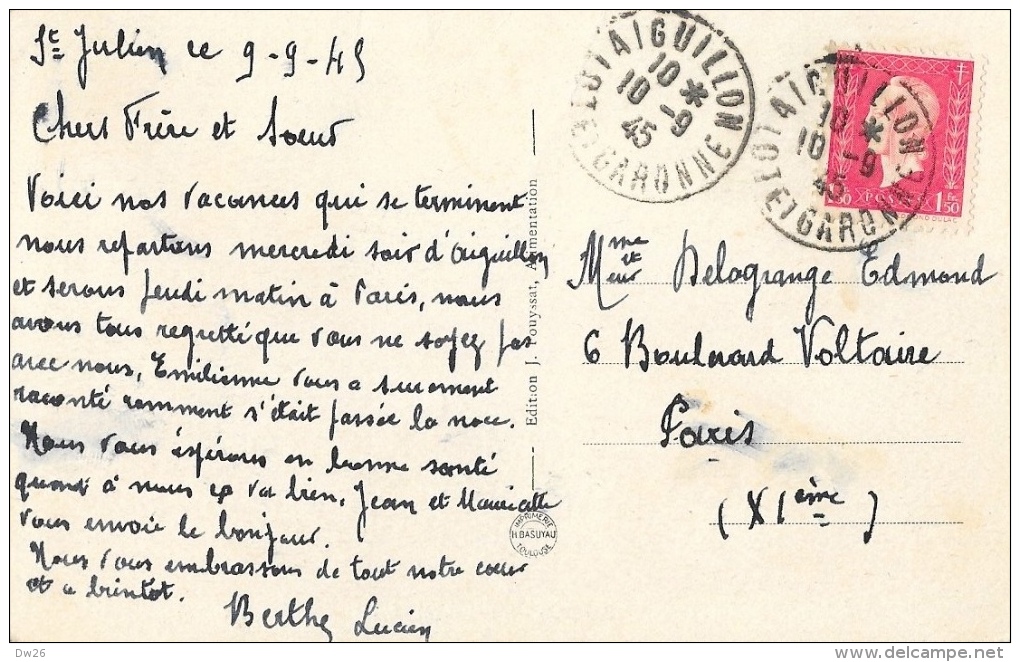 St Julien ce 9-9-45
Chers Frère et Soeur
Voici nos vacances qui se terminent
nous repartons mercredi soir d'Aiguillon
et serons Jeudi matin à Paris, nous
avons tous regretté que vous ne soyez pas
avec nous, Emilienne vous a surement
raconté comment s'était passée la noce.
Nous vous éspérons en bonne santé
quant à nous ça va bien. Jean et Mauricette
vous envoie le bonjour.
Nous vous embrassons de tout notre coeur
et a bientot.
Berthe Lucien
Edition J. Pouyssat, Alimentation
IMPRIMERIE
H. BASUYAU
TOULOUSE
AIGUILLON
10 *
10 -9
45
LOT ET GARONNE
AIGUILLON
10 *
10 -9
45
LOT ET GARONNE
1F50 POSTES 1F50
Mme et Meur Delagrange Edmond
6 Boulevard Voltaire
Paris
(XIème)
Dw26
delcampe.net